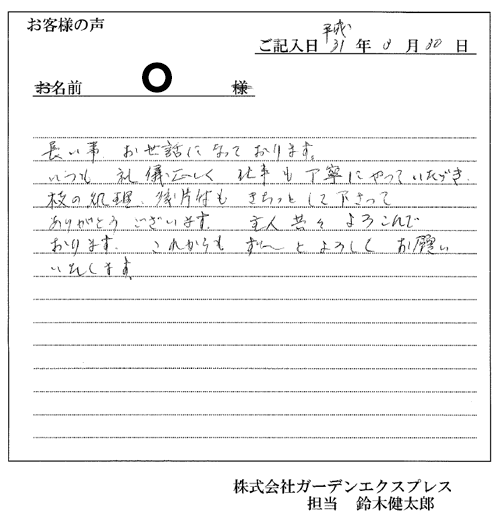 お客様の声
平成
ご記入日 31 年 3 月 30 日
お名前 様
長い事 お世話になっております。
いつも 礼儀正しく 仕事も丁寧にやっていただき、
枝の処理、後片付も きちっとして下さって
ありがとうございます。 主人共々 よろこんで
おります。 これからも ず〜っとよろしく お願い
いたします。
株式会社ガーデンエクスプレス
担当 鈴木健太郎